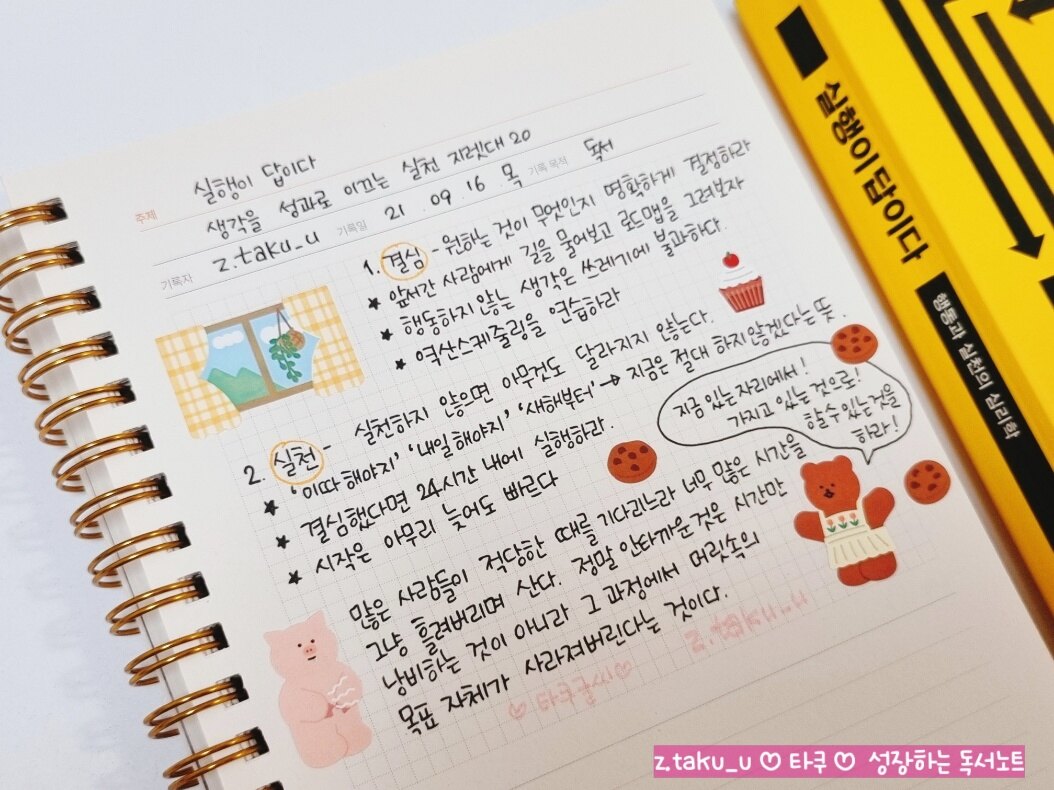 실행이 답이다
주제
생각을 성과로 이끄는 실천 지렛대 20
기록자 z.taku_u 기록일 21.09.16 목 기록 목적 독서
1. 결심 - 원하는 것이 무엇인지 명확하게 결정하라
★ 앞서간 사람에게 길을 물어보고 로드맵을 그려보자
★ 행동하지 않는 생각은 쓰레기에 불과하다.
★ 역산스케줄링을 연습하라
2. 실천 - 실천하지 않으면 아무것도 달라지지 않는다.
★ '이따 해야지' '내일 해야지' '새해부터' → 지금은 절대 하지 않겠다는 뜻.
★ 결심했다면 24시간 내에 실행하라.
★ 시작은 아무리 늦어도 빠르다
지금 있는 자리에서!
가지고 있는 것으로!
할 수 있는 것을
하라!
많은 사람들이 적당한 때를 기다리느라 너무 많은 시간을
그냥 흘려버리며 산다. 정말 안타까운 것은 시간만
낭비하는 것이 아니라 그 과정에서 머릿속의
목표 자체가 사라져버린다는 것이다.
♡ 타쿠글씨 ♡
실행이 답이다
행동과 실천의 심리학
z.taku_u ♡ 타쿠 ♡ 성장하는 독서노트